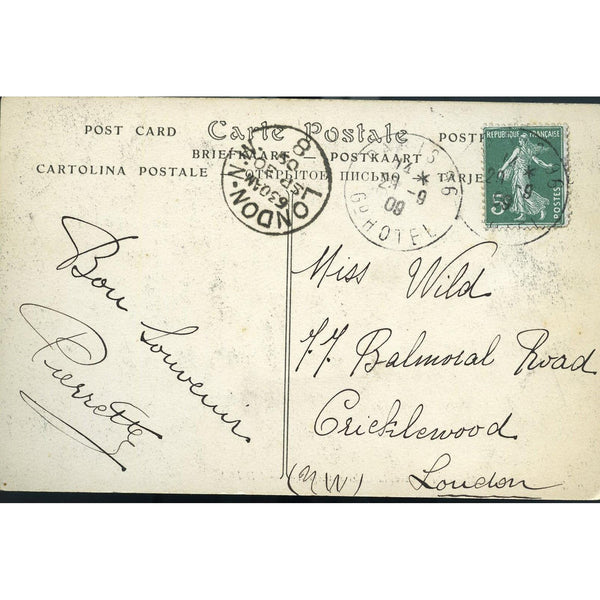 POST CARD Carte Postale
BRIEFKAART — POSTKAART
CARTOLINA POSTALE ОТКРЫТОЕ ПИСЬМО TARJE
LONDON. N.W.
6 30 AM
8
PARIS 96
29 -9
09
Gd HOTEL
REPUBLIQUE FRANÇAISE
5c
POSTES
Bon Souvenir
Pierrette
Miss Wild
77 Balmoral Road
Cricklewood
(NW) London